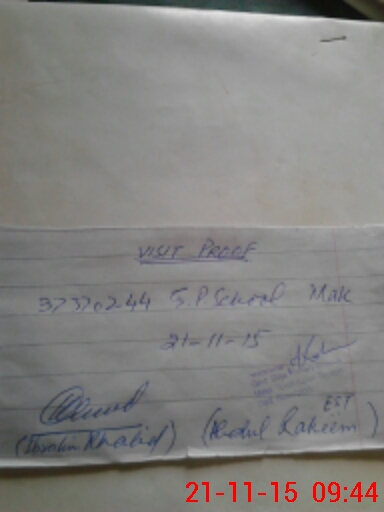 VISIT PROOF
37370244 G.P. School Mak
21-11-15
EST
(Ibrahim Khalid) (Abdul Raheem)
21-11-15 09:44